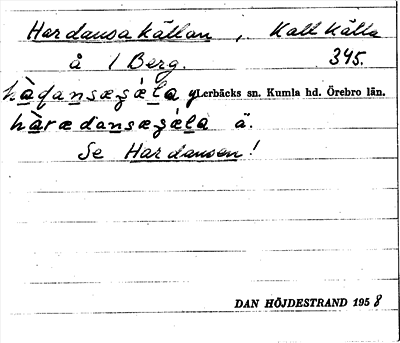 Hardansakällan, Kall Källa
å 1 Berg. 345.
hàdansæʒéla y Lerbäcks sn. Kumla hd. Örebro län.
hàrædansæʒéla ä.
Se Hardansen!
DAN HÖJDESTRAND 1958